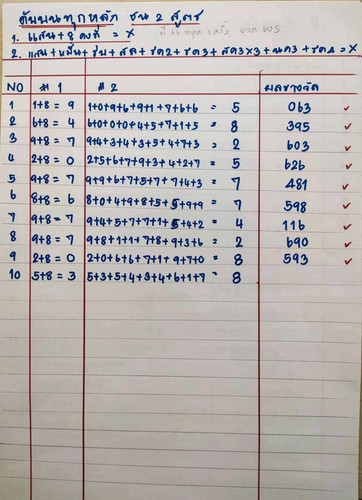 ดับบนทุกหลัก ชน 2 สูตร
1. แสน+8 คงที่ = X
2. แสน+หมื่น+ + + 2+ 3+ 3×3+ 3+ = X
NO #1 #2 ผลรางวัล
1 1+8 = 9 1+0+9+6+9+1+7+6+6 = 5 063 ✓
2 6+8 = 4 6+0+0+0+4+5+7+1+5 = 8 395 ✓
3 9+8 = 7 9+4+3+4+3+5+4+7+3 = 2 603 ✓
4 2+8 = 0 2+5+6+7+9+3+4+2+7 = 5 626 ✓
5 9+8 = 7 9+9+6+7+5+7+7+4+3 = 7 481 ✓
6 8+8 = 6 8+0+4+9+8+5+5+9+9 = 7 598 ✓
7 9+8 = 7 9+4+5+7+7+1+5+4+2 = 4 116 ✓
8 9+8 = 7 9+8+1+1+7+8+9+3+6 = 2 690 ✓
9 2+8 = 0 2+0+6+6+7+1+9+7+0 = 8 593 ✓
10 5+8 = 3 5+3+5+4+3+4+6+1+7 = 8